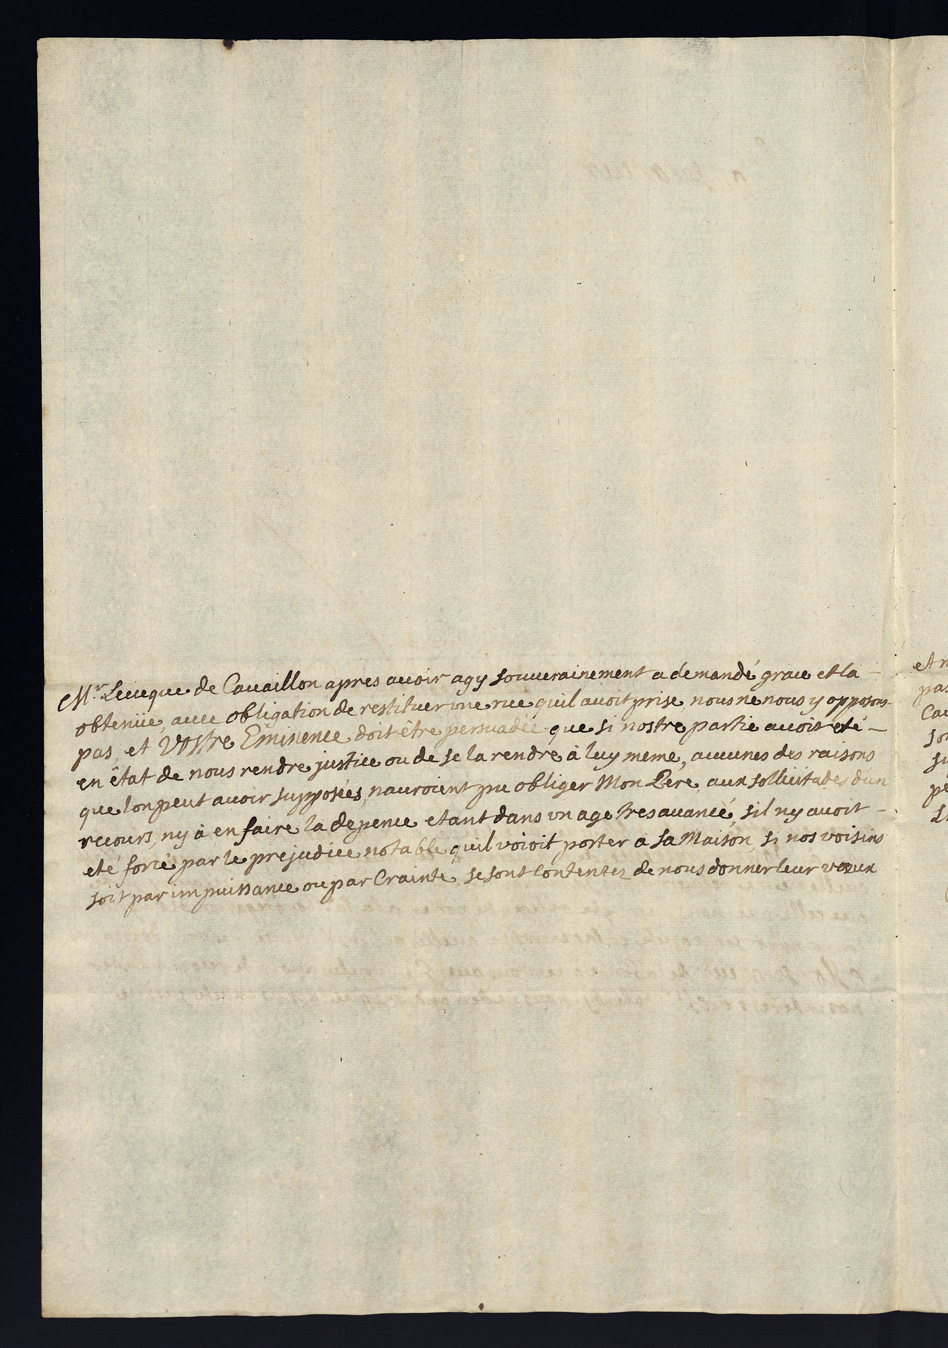 Mr Leveque de Cavaillon apres avoir agy souverainement a demandé grace et la
obtenüe, avec obligation de restituer une rue quil avoit prise, nous ne nous y opposons
pas, et Vostre Eminence doit être persuadée que si nostre partie avoit eté
en êtat de nous rendre justice ou de se la rendre à luy meme, aucunes des raisons
que lon peut avoir supposées, nauroient pu obliger Mon Pere, aux sollicitudes dun
recours, ny à en faire la depence etant dans un age tres avancé, sil ny avoit
eté forcé par le prejudice notable quil voioit porter à sa Maison, si nos voisins
soit par impuissance ou par Crainte se sont contentez de nous donner leur vœux